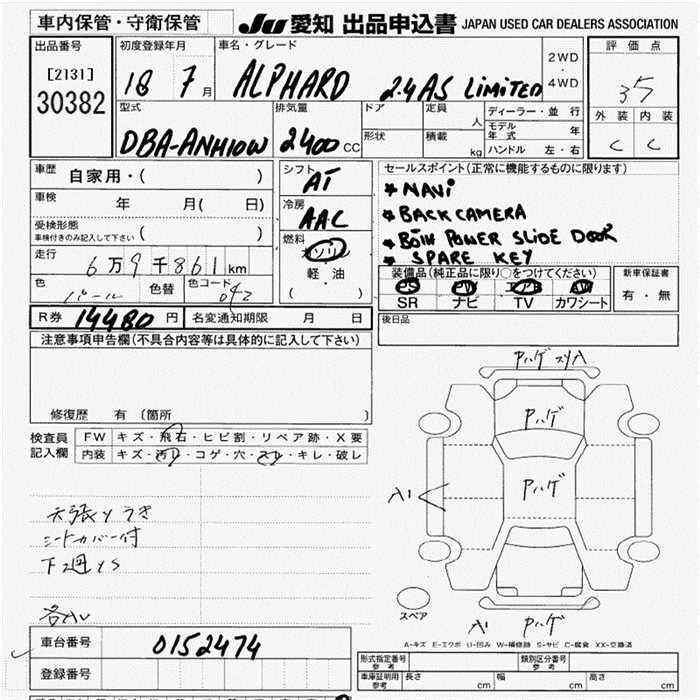 車内保管・守衛保管
JU 愛知 出品申込書 JAPAN USED CAR DEALERS ASSOCIATION
出品番号
[2131]
30382
初度登録年月
18 7月
車名・グレード
ALPHARD 2.4 AS LIMITED
2WD
・
4WD
評価点
3.5
外装 内装
C C
型式
DBA-ANH10W
排気量
2400 CC
ドア 定員 人
形状 積載 kg
ディーラー・並行
モデル年式 年
ハンドル 左・右
車歴
自家用・( )
車検 年 月( 日)
受検形態
車検付きのみ記入して下さい ( )
走行
6万9千861km
色 パール 色替 色コード 042
シフト
AT
冷房
AAC
燃料
ガソリン
軽・油
( )
セールスポイント(正常に機能するものに限ります)
* NAVi
* BACK CAMERA
* BOTH POWER SLIDE DOOR
* SPARE KEY
装備品(純正品に限り○をつけてください)
PS PW エアB AW
SR ナビ TV カワシート
新車保証書
有・無
R券 14480 円 名変通知期限 月 日
後日品
注意事項申告欄(不具合内容等は具体的に記入して下さい)
修復歴 有 〔箇所 〕
検査員
記入欄
FW キズ・飛石・ヒビ割・リペア跡・X要
内装 キズ・汚レ・コゲ・穴・スレ・キレ・破レ
天張りうき
シートカバー付
下廻りS
Pハゲ スリA
Pハゲ
Pハゲ
A1
スペア
A1 Pハゲ
A-キズ E-エクボ U-凹み W-補修跡 S-サビ C-腐食 XX-交換済
車台番号 0152474
登録番号
形式指定番号
参考
類別区分番号
参考
車庫証明用
参考
長さ cm 幅 cm 高さ cm